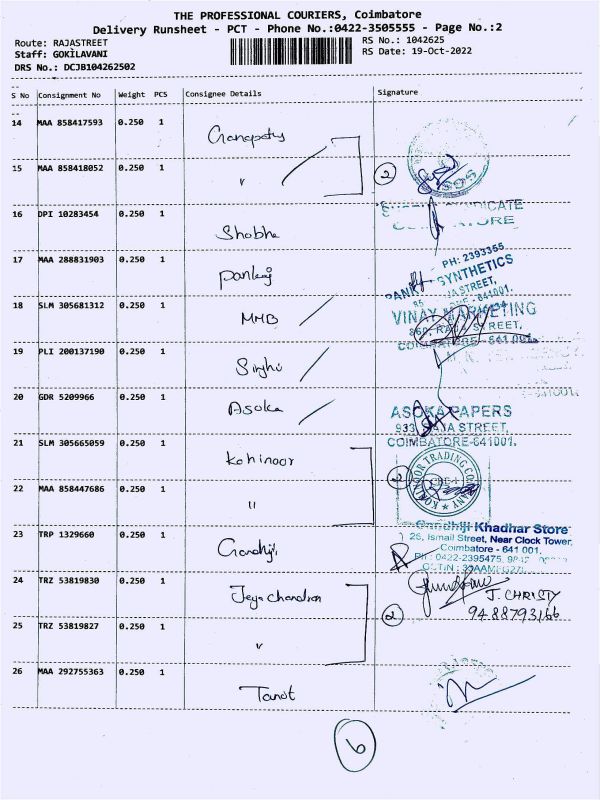 THE PROFESSIONAL COURIERS, Coimbatore
Delivery Runsheet - PCT - Phone No.:0422-3505555 - Page No.:2
Route: RAJASTREET
Staff: GOKILAVANI
DRS No.: DCJB104262502
RS No.: 1042625
RS Date: 19-Oct-2022
S No Consignment No Weight PCS Consignee Details Signature
14 MAA 858417593 0.250 1 Ganapathy
15 MAA 858418052 0.250 1 " 2
16 DPI 10283454 0.250 1 Shobha
17 MAA 288831903 0.250 1 Pankaj
PH: 2393355
SYNTHETICS
JA STREET,
641001.
18 SLM 305681312 0.250 1 MMB
VINAY MARKETING
860, RAJA STREET,
COIMBATORE - 641 001.
19 PLI 200137190 0.250 1 Singhvi
20 GDR 5209966 0.250 1 Asoka
ASOKA PAPERS
933, RAJA STREET,
COIMBATORE-641001.
21 SLM 305665059 0.250 1 Kohinoor 2
KOHINOOR TRADING COMPANY
22 MAA 858447686 0.250 1 "
23 TRP 1329660 0.250 1 Gandhiji
Gandhiji Khadhar Store
26, Ismail Street, Near Clock Tower,
Coimbatore - 641 001.
Ph: 0422-2395475,
24 TRZ 53819830 0.250 1 Jeya chandran
J. CHRISTY
9488793166
2
25 TRZ 53819827 0.250 1 "
26 MAA 292755363 0.250 1 Tanot
6